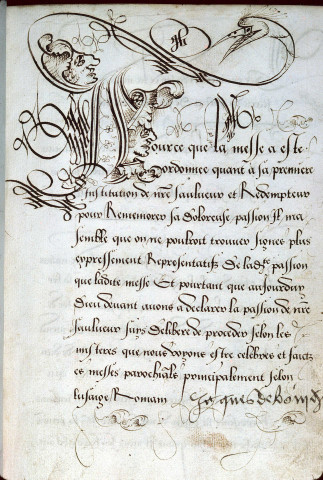 Pource que la messe a este
ordonnee quant a sa premiere
institution de nre saulueur et Redempteur
pour Rememorer sa doloreuse passion Il ma
semble que on ne pouldroit trouuer signes plus
expressement Representatifz de lade passion
que ladite messe Et pourtant que auiourduy
dieu deuant auons a declarer la passion de nre
saulueur suys delibere de proceder selon les
misteres que nous voyons estre celebres et faictz
es messes parochiales principalement selon
lusaige Romain Jaques de